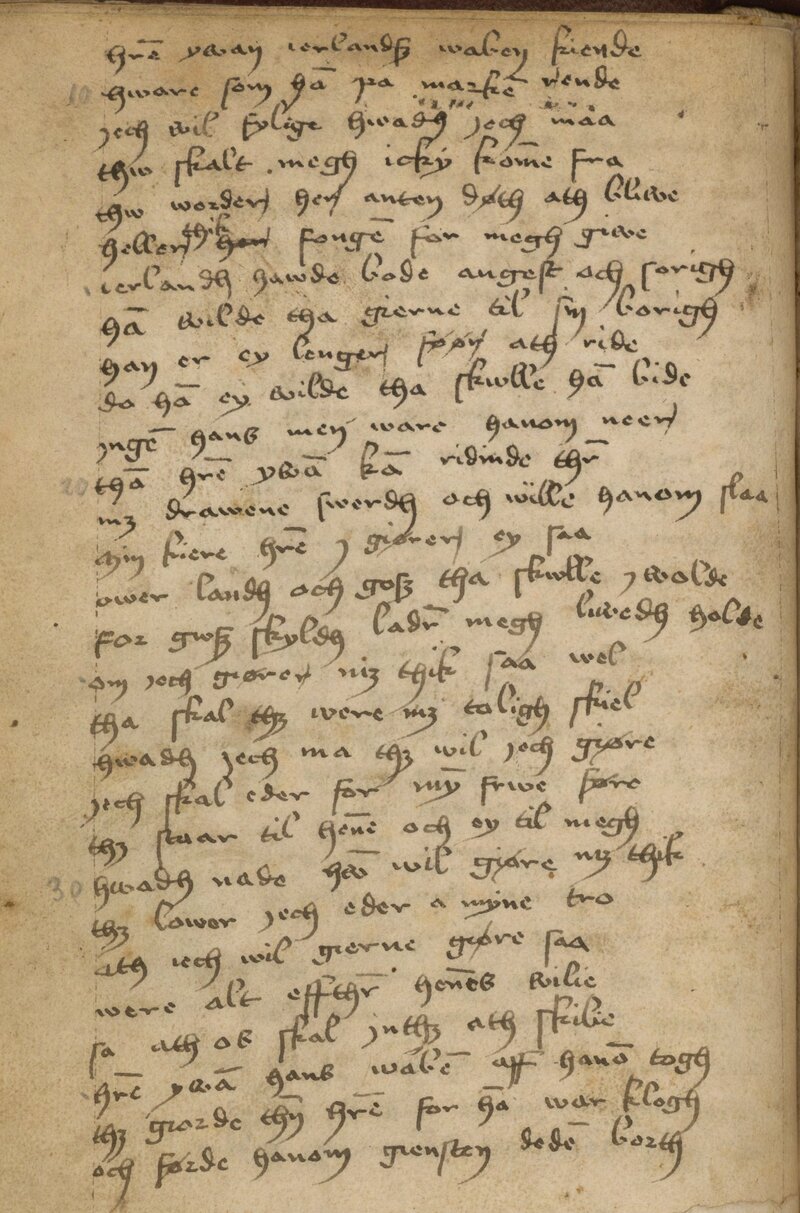 hrē ywan ierlandß waben kiende
10 hware som hā pa markē rende
jech wil fylige hwadh jech maa
thw skalt megh icky kom̄e fra
thw worder her anten døth ath bliwe
heller thik fongē for megh giwe
ierlandh hawde bode angest och sorigh
hā wilde tha gierne til sin borigh
han er ey lenger før ath ride
do hā ey wilde tha skwlle hā bide
jngē hans men ware hanom neer
20 thā hrē ywā kā ridinde thr̄
mz drawene swerdh och wille hanom slaa
min kiere hrē j giører ey saa
ower landh och goß tha skwlle j wolde
for gwß skyldh ladr̄ megh liwedh holde
om jech giører mz thik saa wel
tha skal thz were mz toligh skiel
hwadh jech ma thz wil jech giøre
jech skal eder for myn̄ frwe føre
thz staar til hen̄e och ey til megh
30 hwadh nade hw̄ wil giøre mz thik
thz lower jech eder a myne tro
ath jech wil gierne giøre saa
were alt effthr̄ hen̄es wilie
sa ath os skal jnthz ath skilie
hrē ywā hans wabē aff hanō togh
thz giorde thn̄ hrē for hā war klogh
och førde hanom giensten dedē borth